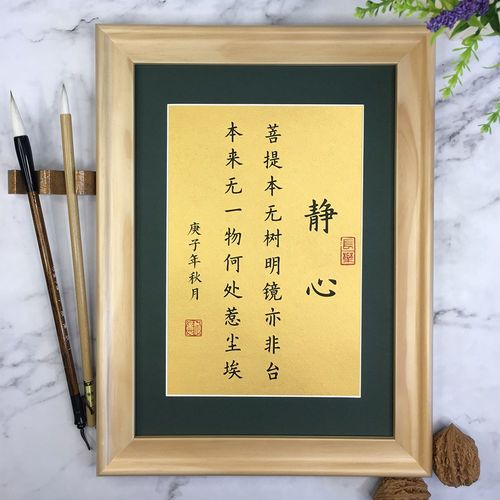 静心
菩提本无树明镜亦非台
本来无一物何处惹尘埃
庚子年秋月